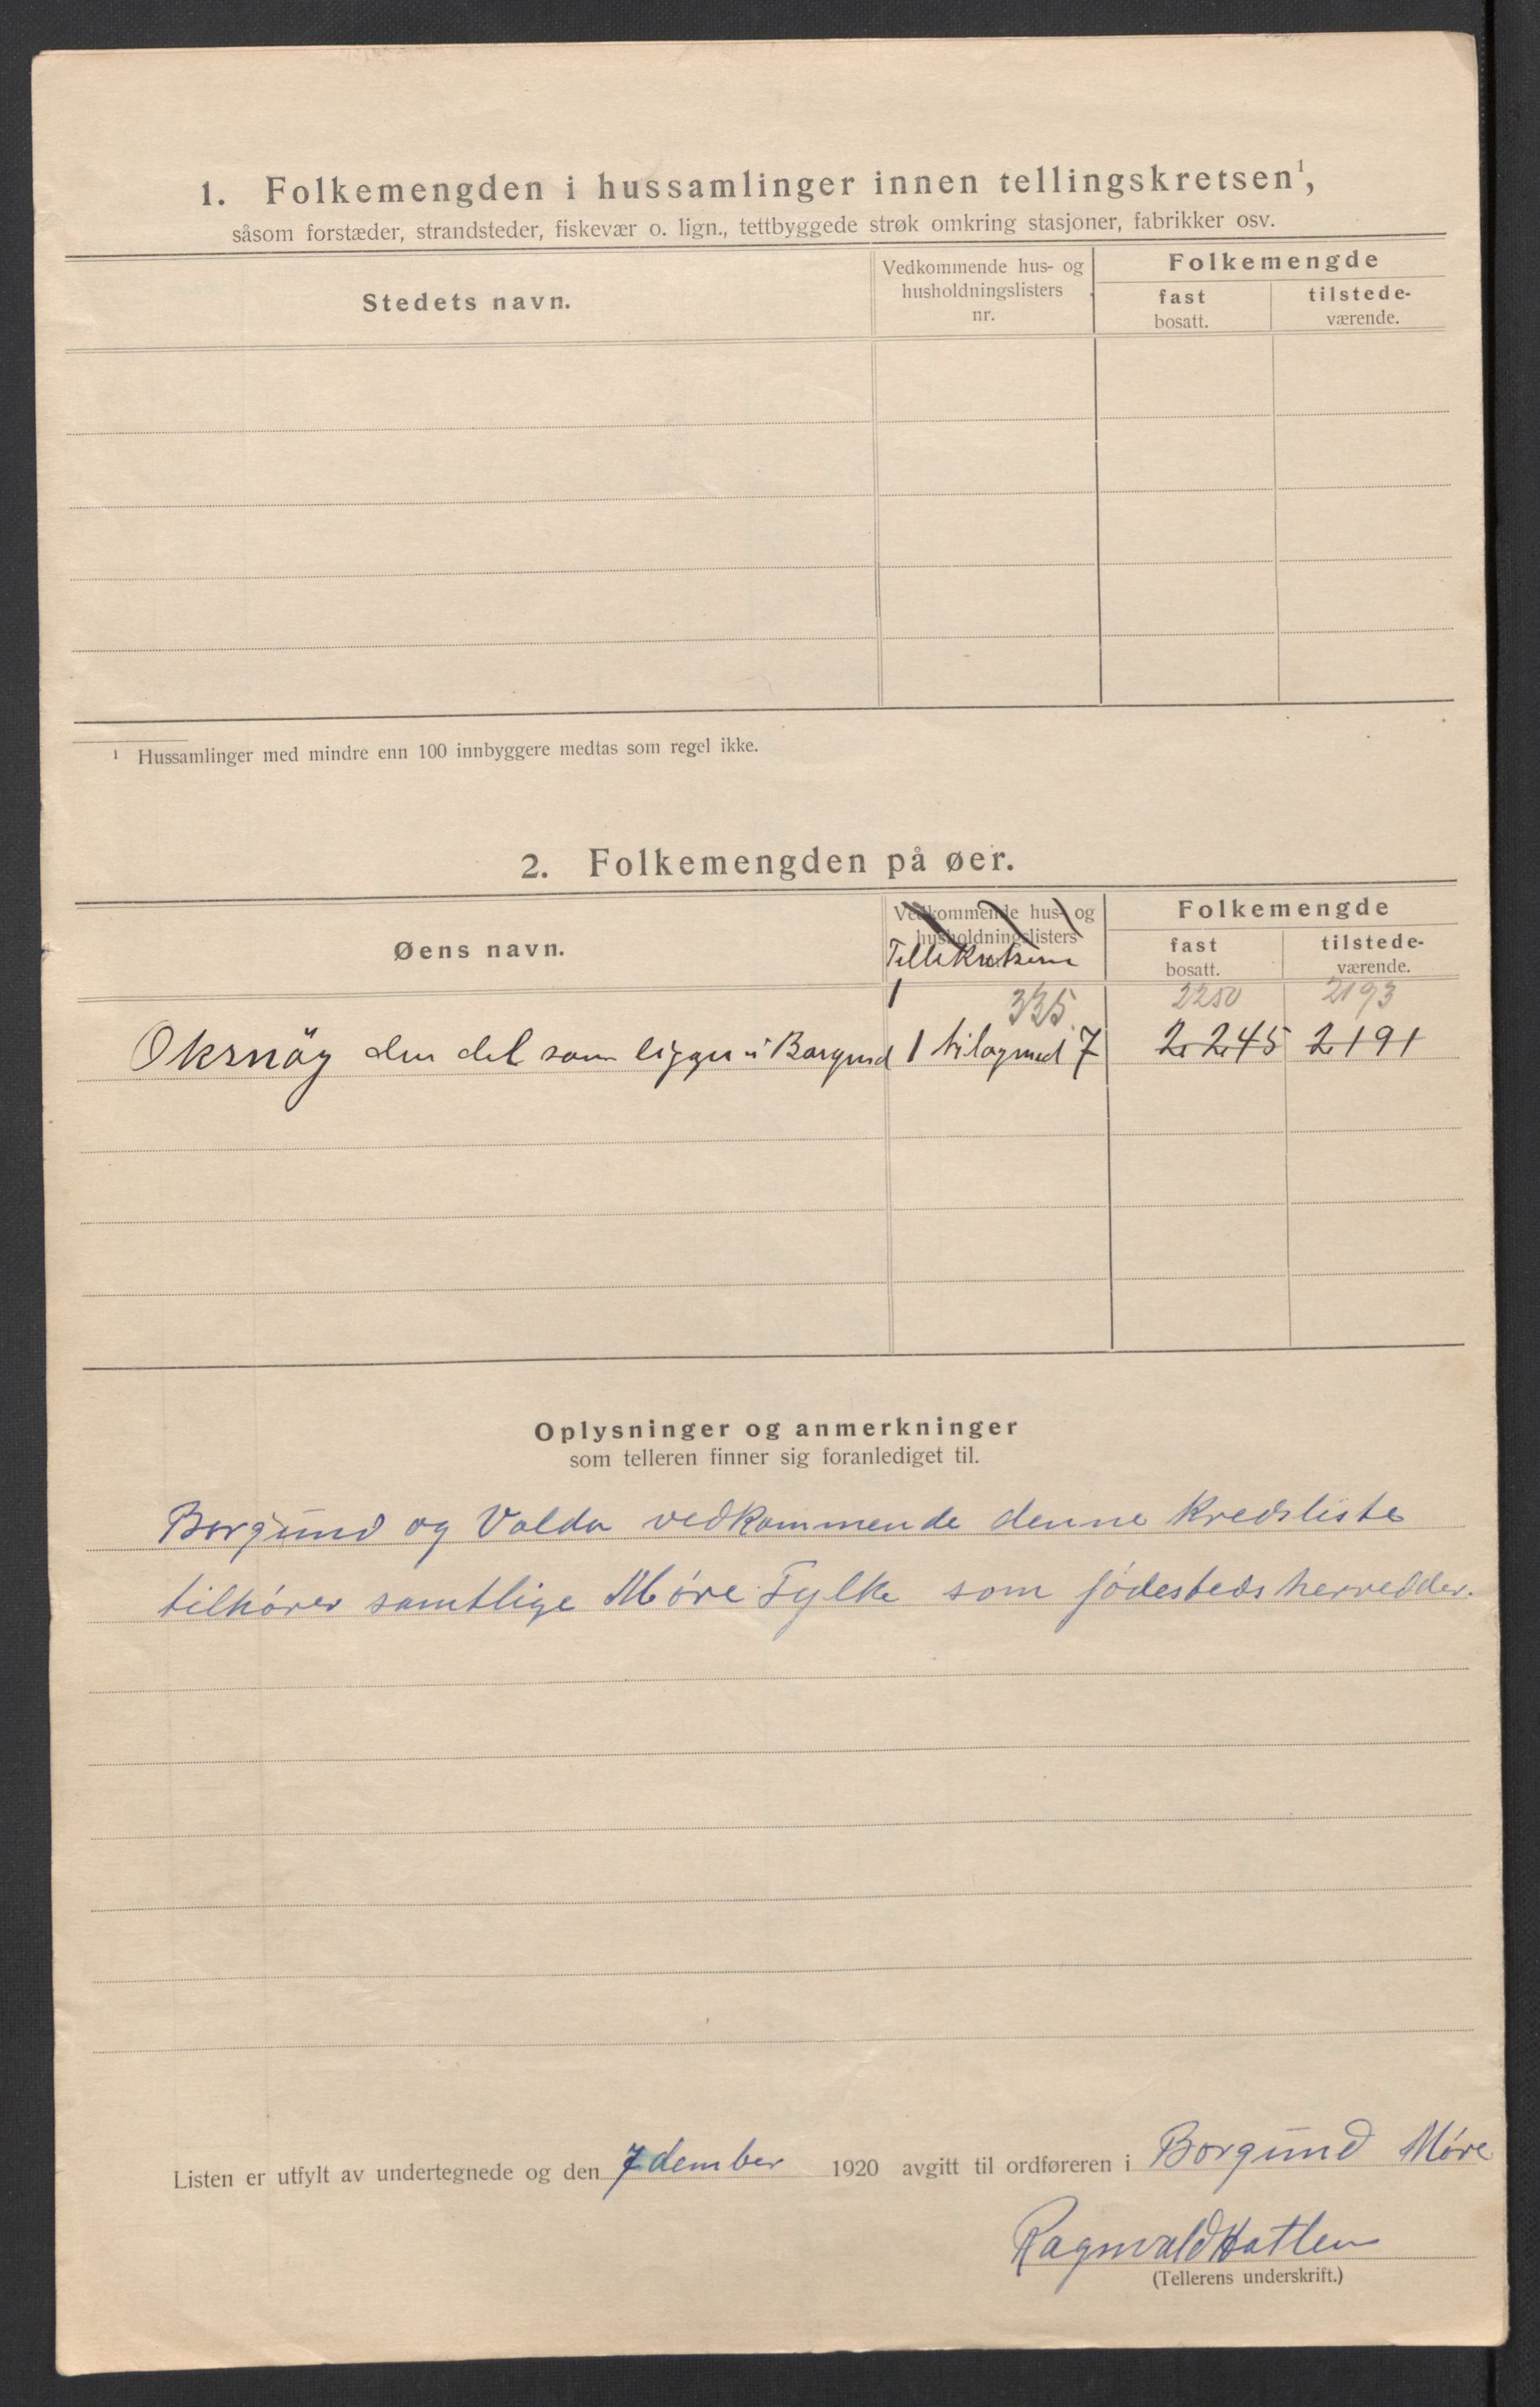 1. Folkemengden i hussamlinger innen tellingskretsen¹,
såsom forstæder, strandsteder, fiskevær o. lign., tettbyggede strøk omkring stasjoner, fabrikker osv.
Stedets navn.
Vedkommende hus- og
husholdningslisters
nr.
Folkemengde
fast
bosatt.
tilstede-
værende.
¹ Hussamlinger med mindre enn 100 innbyggere medtas som regel ikke.
2. Folkemengden på øer.
Øens navn.
Vedkommende hus- og
husholdningslisters
Tellekretsene
Folkemengde
fast
bosatt.
tilstede-
værende.
335 2250 2193
Oksnöy den del som ligger i Borgund 1 til og med 7 2245 2191
Oplysninger og anmerkninger
som telleren finner sig foranlediget til.
Borgund og Volda vedkommende denne Kredsliste
tilhører samtlige Møre Fylke som födestedsherredder.
Listen er utfylt av undertegnede og den 7 dember 1920 avgitt til ordføreren i Borgund Møre
Ragnvald Hatlen
(Tellerens underskrift.)